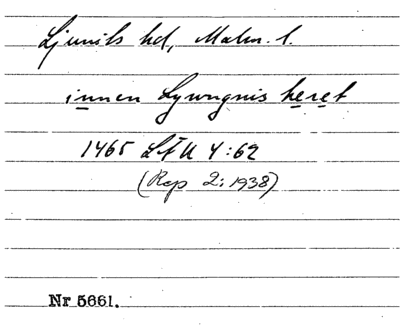 Ljunits hd, Malm. l.
innen Lywngnis heret
1465 LÄU 4:62
(Rep 2: 1938)
Nr 5661.